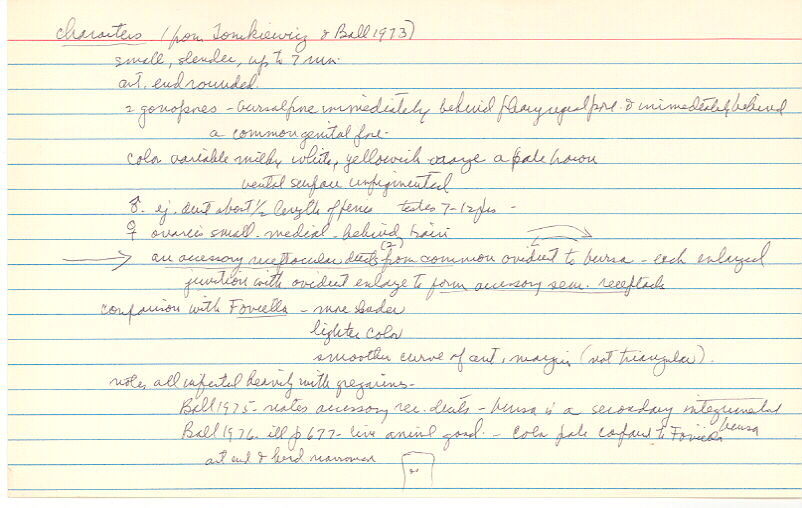 characters (from Tomkiewicz & Ball 1973)
small, slender, up to 7 mm.
ant. end rounded.
2 gonopores - bursal pore immediately behind pharyngeal pore & immediately behind
a common genital pore.
color variable milky white, yellowish orange a pale brown
ventral surface unpigmented
♂. ej. duct about 1/2 length of penis testes 7-12 prs -
♀ ovaries small - medial - behind brain
an accessory receptacular ducts (2) from common oviduct to bursa - each enlarged
junction with oviduct enlarge to form accessory sem. receptacle
comparison with Foviella -
lighter color
smoother curve of ant. margin (not triangular).
notes all infected heavily with gregarines -
Ball 1975 - notes accessory rec. ducts - bursa is a secondary integumental
bursa
Ball 1976. ill p 677 - live animal good. - color pale compared to Foviella
ant end & head narrower